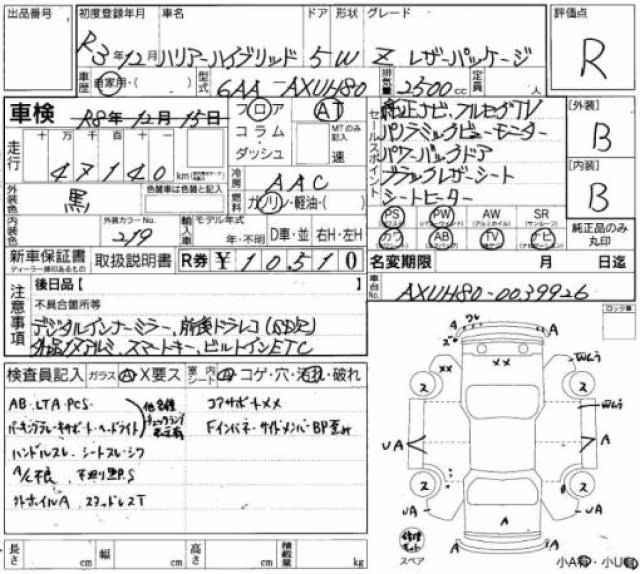 出品番号
初度登録年月 車名 ドア 形状 グレード 評価点
R3年12月 ハリアーハイブリッド 5 W Z レザーパッケージ R
車歴 自家用・( ) 型式 6AA-AXUH80 排気量 2500cc 定員 人
車検 R8年12月15日
フロア コラム・ダッシュ AT MTのみ記入 速
セールスポイント
純正ナビ、フルセグTV
パノラミックビューモニター
パワーバックドア
ブラックレザーシート
シートヒーター
[外装] B
[内装] B
走行 十万千百十 47140 km
冷房 AAC
燃料 ガソリン・軽油・( )
外装色 黒 色替車は色替と記入
内装色 外装カラーNo. 219
輸入車 モデル年式 年・不明 D車・並 右H・左H
PS PW AW SR
(アルミホイル) (サンルーフ)
カワ AB TV ナビ
純正品のみ丸印
新車保証書 ディーラー捺印あるもの 取扱説明書 R券 ¥10,510
名変期限 月 日迄
車台No. AXUH80-0039926
注意事項
後日品【 】
不具合箇所等
デジタルインナーミラー、前後ドラレコ
外品17アルミ、スマートキー、ビルトインETC
ロック車
検査員記入 ガラス A・X要ス 室内 シート コゲ・穴・汚れ・破れ
AB・LTA・PCS・
パーキングブレーキサポート・ヘッドライト
他各種チェックランプ
コアサポートXX
Fインパネ・サイドメンバーBP歪み
ハンドルスレ シートスレ・シワ
A/C不良
外ホイルA スタッドレスT
A A
XX
XX
ス ス
UA A
ス ス
UA UA
A
A A
スペア
小A・小U
長さ cm 幅 cm 高さ cm 積載量 kg